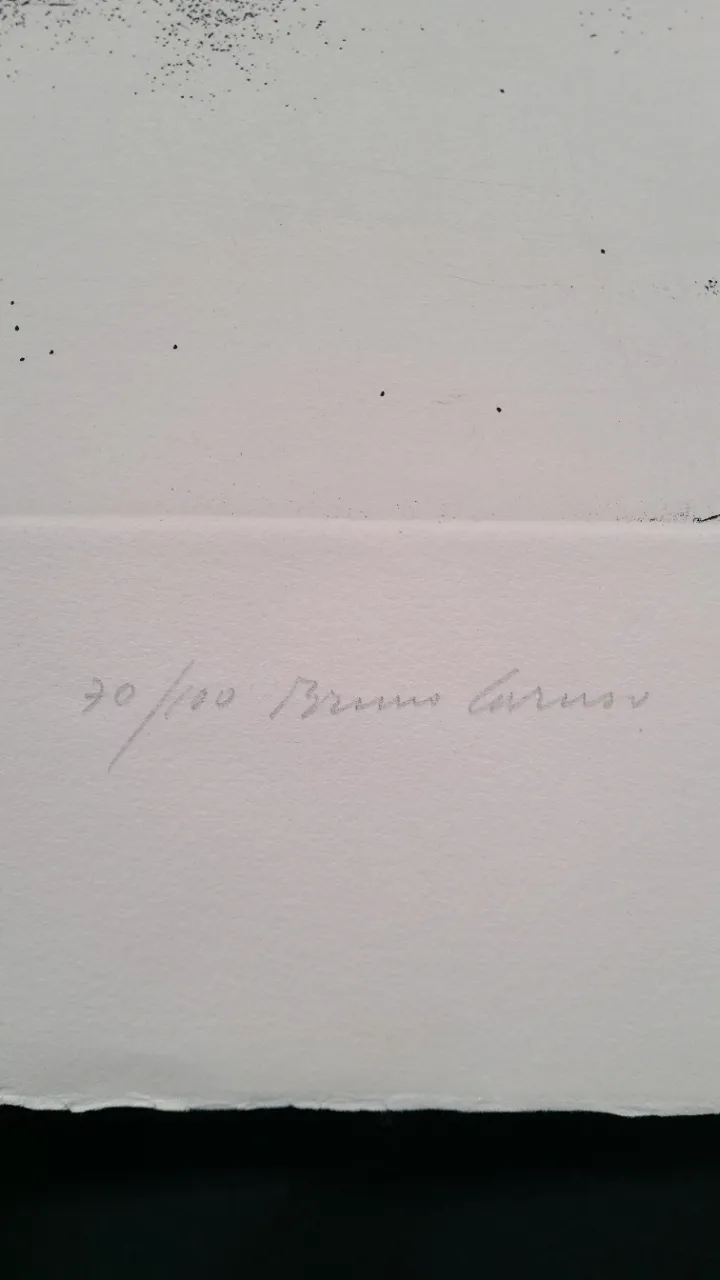 70/100 Bruno Caruso